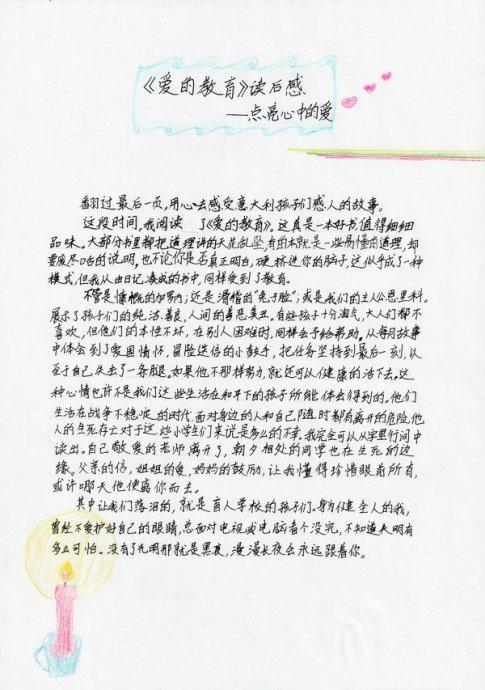 《爱的教育》读后感
——点亮心中的爱
翻过最后一页,用心去感受意大利孩子们感人的故事。
这段时间,我阅读 了《爱的教育》,这真是一本好书,值得细细
品味。大部分书里都把道理讲的天花乱坠,有的本就是一些易懂的道理,却
要废尽口舌的说明,也不论你是否真正明白,硬挤进你的脑子,这似乎成了一种
模式,但我从由日记凑成的书中,同样受到了教育。
不管是慷慨的加罗纳;还是滑稽的“兔子脸”;或是我们的主人公恩里科,
展示了孩子们的纯洁善良,人间的善恶美丑。有些孩子十分淘气,大人们都不
喜欢,但他们的本性不坏,在别人困难时,同样会予给帮助。从每月故事
中体会到了爱国情怀,冒险送信的小鼓手,把任务坚持到最后一刻,以
至于自己失去了一条腿。如果他不那样努力,就还可以健康的活下去。这
种心情也许不是我们这些生活在和平下的孩子所能体会得到的。他们
生活在战争不稳定的时代,面对身边的人和自己随时都有离开的危险,他
人的生死存亡对于这些小学生们来说是多么的不幸。我完全可以从字里行间中
读出。自己敬爱的老师离开了,朝夕相处的同学也在生死的边
缘,父亲的信,姐姐的爱,妈妈的鼓励,让我懂得珍惜眼前所有,
或许哪天他便离你而去。
其中让我们落泪的,就是盲人学校的孩子们。身为健全人的我,
曾经不爱护好自己的眼睛,总面对电视或电脑看个没完,不知道失明有
多么可怕。没有了光明那就是黑夜,漫漫长夜会永远跟着你。